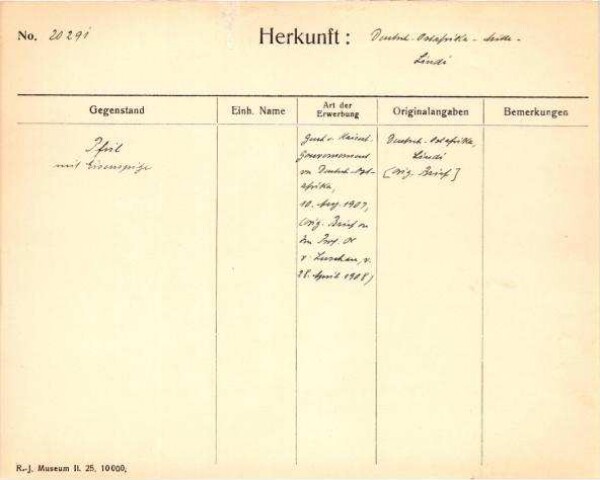 No. 2029i
Herkunft: Deutsch-Ostafrika -
Lindi
Gegenstand
Einh. Name
Art der
Erwerbung
Originalangaben
Bemerkungen
Pfeil
mit Eisenspitze
Gesch. v. Kaiserl.
Gouvernement
von Deutsch-Ost-
afrika,
10. Aug. 1907,
(orig. Brief von
Prof. Dr
v. Luschan, v.
28. April 1908)
Deutsch-Ostafrika,
Lindi
[orig. Brief]
R.-J. Museum II. 25, 10000,